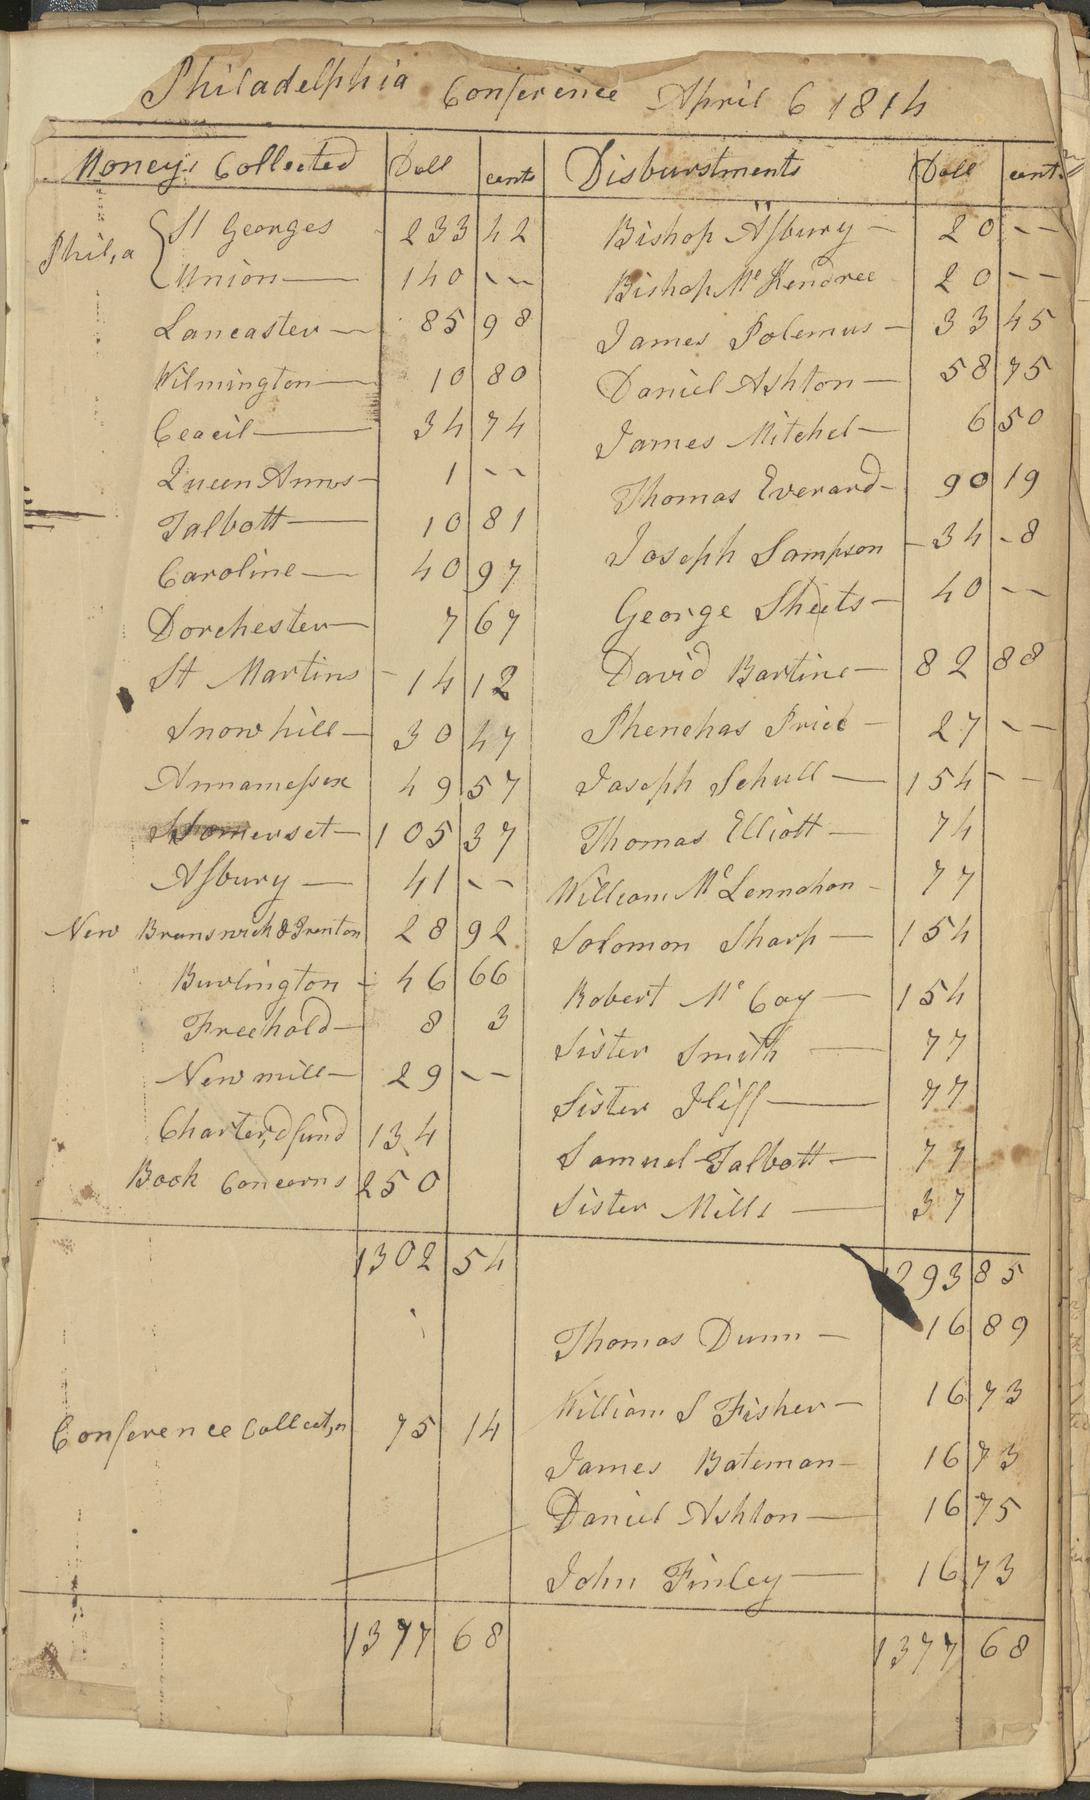 Philadelphia Conference April 6 1814
Moneys Collected Doll cents Disburstments Doll cent
Phila St Georges 233 42 Bishop Asbury 20 --
Union 140 -- Bishop McKendree 20 --
Lancaster 85 98 James Polemus 33 45
Wilmington 10 80 Daniel Ashton 58 75
Ceacil 34 74 James Mitchel 6 50
Queen Anns 1 -- Thomas Everard 90 19
Talbott 10 81 Joseph Sampson 34 -8
Caroline 40 97 George Sheets 40 --
Dorchester 7 67 David Bartine 82 88
St Martins 14 12 Phenehas Price 27 --
Snow hill 30 47 Joseph Schull 154 --
Annamessex 49 57 Thomas Elliott 74
Somerset 105 37 William McLennahon 77
Asbury 41 -- Solomon Sharp 154
New Brunswick & Trenton 28 92 Robert McCoy 154
Burlington 46 66 Sister Smith 77
Freehold 8 3 Sister Iliff 77
New mill 29 -- Samuel Talbott 77
Charterd fund 134 Sister Mills 37
Book Concerns 250
1302 54 1293 85
Thomas Dunn 16 89
William S Fisher 16 73
Conference Collectn 75 14 James Bateman 16 73
Daniel Ashton 16 75
John Finley 16 73
1377 68 1377 68